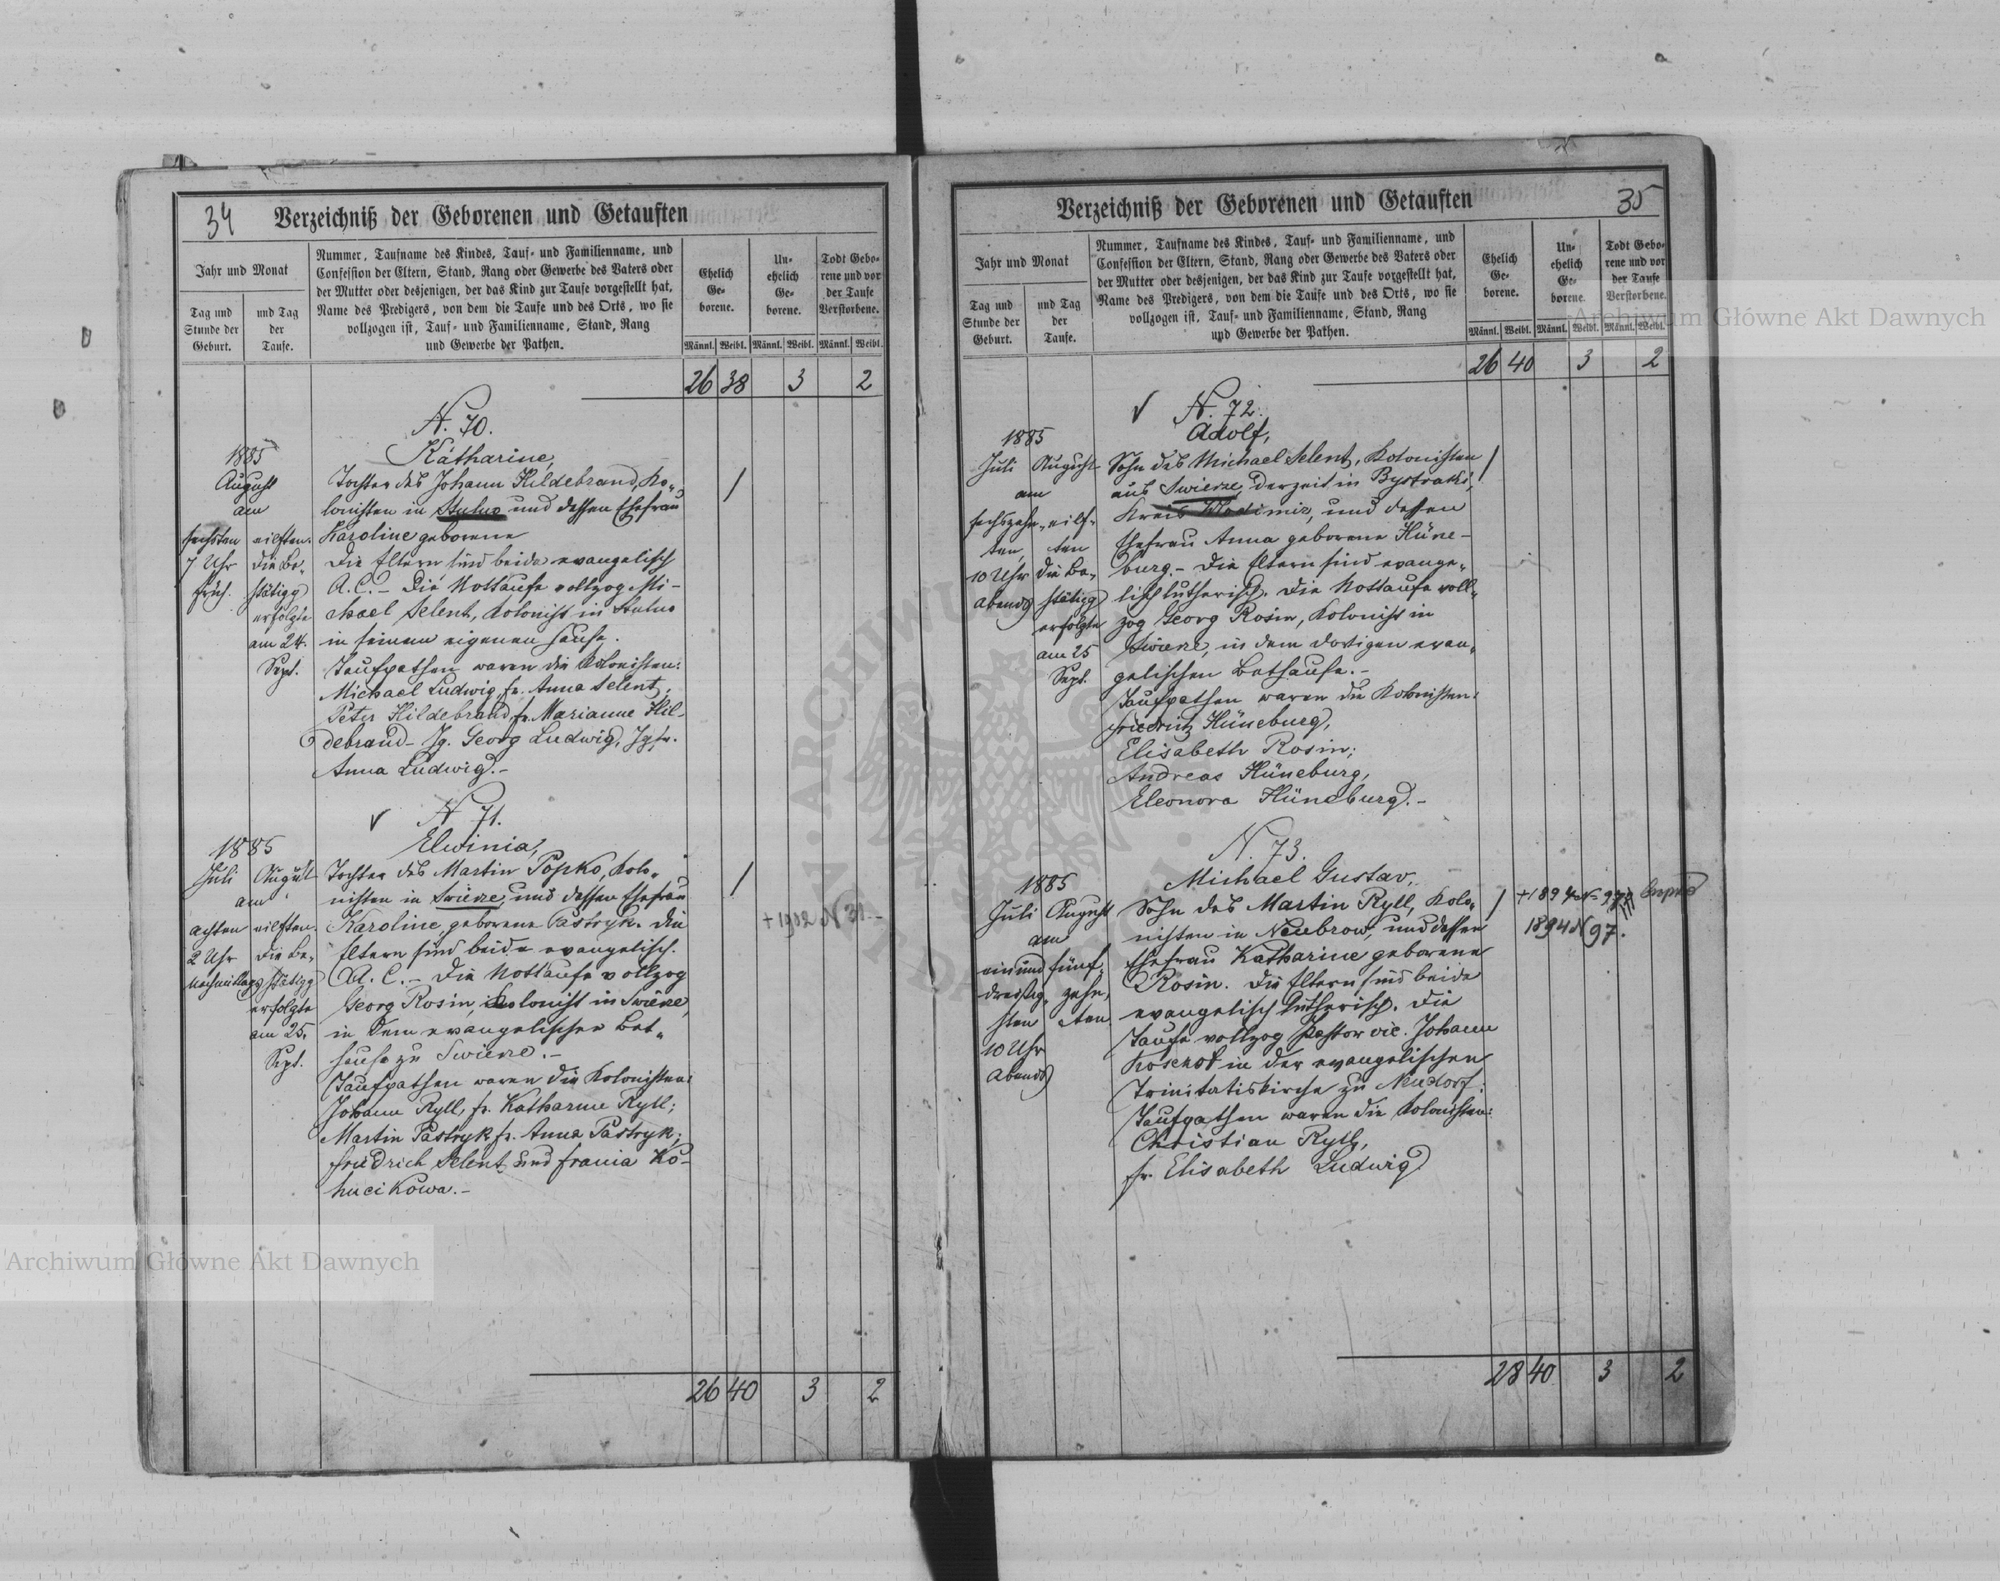 34
Verzeichniß der Geborenen und Getauften
Jahr und Monat
Tag und Stunde der Geburt.
und Tag der Taufe.
Nummer, Taufname des Kindes, Tauf- und Familienname, und
Confession der Eltern, Stand, Rang oder Gewerbe des Vaters oder
der Mutter oder desjenigen, der das Kind zur Taufe vorgestellt hat,
Name des Predigers, von dem die Taufe und des Orts, wo sie
vollzogen ist, Tauf- und Familienname, Stand, Rang
und Gewerbe der Pathen.
Ehelich Ge-borene.
Un-ehelich Ge-borene.
Todt Gebo-rene und vor der Taufe Verstorbene.
Männl. Weibl. Männl. Weibl. Männl. Weibl.
26 38 3 2
N. 70.
Katharine,
1885
August
am
sechsten
7 Uhr
früh.
eilften.
Die Be-
stätigg
erfolgte
am 24.
Sept.
Tochter des Johann Hildebrand, Ko-
lonisten in und dessen Ehefrau
Karoline geborene
Die Eltern sind beide evangelisch
A. C. – Die Nottaufe vollzog Mi-
chael Selent, Kolonist in
in seinem eigenen Hause.
Taufpathen waren die Kolonisten:
Michael Ludwig, fr. Anna Selent,
Peter Hildebrand, fr. Marianne Hil-
debrand – Jg. Georg Ludwig, Jgfr.
Anna Ludwig. –
N 71.
Elwinia,
1885
Juli August
am
achten
2 Uhr
Nachmittags
eilften.
Die Be-
stätigg
erfolgte
am 25.
Sept.
Tochter des Martin Popko, Kolo-
nisten in Swierze, und dessen Ehefrau
Karoline, geborene Pastryk. Die
Eltern sind beide evangelisch.
A. C. – Die Nottaufe vollzog
Georg Rosin, Kolonist in Swierze,
in dem evangelischen Bet-
hause zu Swierze. –
Taufpathen waren die Kolonisten:
Johann Ryll, fr. Katharine Ryll;
Martin Pastryk, fr. Anna Pastryk;
Friedrich Selent und Frania Ko-
hucikowa. –
+ 1902 N 31. –
26 40 3 2
35
Verzeichniß der Geborenen und Getauften
Jahr und Monat
Tag und Stunde der Geburt.
und Tag der Taufe.
Nummer, Taufname des Kindes, Tauf- und Familienname, und
Confession der Eltern, Stand, Rang oder Gewerbe des Vaters oder
der Mutter oder desjenigen, der das Kind zur Taufe vorgestellt hat,
Name des Predigers, von dem die Taufe und des Orts, wo sie
vollzogen ist, Tauf- und Familienname, Stand, Rang
und Gewerbe der Pathen.
Ehelich Ge-borene.
Un-ehelich Ge-borene.
Todt Gebo-rene und vor der Taufe Verstorbene.
Männl. Weibl. Männl. Weibl. Männl. Weibl.
26 40 3 2
N. 72.
Adolf,
1885
Juli August
am
sechszehn-
ten
10 Uhr
Abends
eilf-
ten
Die Be-
stätigg
erfolgte
am 25
Sept.
Sohn des Michael Selent, Kolonisten
aus Swierze, derzeit in Bystraki,
Kreis Wlodimir, und dessen
Ehefrau Anna geborene Hüne-
burg. – Die Eltern sind evange-
lisch lutherisch. Die Nottaufe voll-
zog Georg Rosin, Kolonist in
Swierze, in dem dortigen evan-
gelischen Bethause. –
Taufpathen waren die Kolonisten:
Friedrich Hüneburg,
Elisabeth Rosin;
Andreas Hüneburg,
Eleonora Hüneburg. –
N. 73.
Michael Gustav,
1885
Juli August
am
ein und
dreißig-
sten
10 Uhr
Abends
fünf-
zehn-
ten.
Sohn des Martin Ryll, Kolo-
nisten in Neubrow, und dessen
Ehefrau Katharine geborene
Rosin. Die Eltern sind beide
evangelisch lutherisch. Die
Taufe vollzog Pastor vic. Johann
in der evangelischen
Trinitatiskirche zu Neudorf.
Taufpathen waren die Kolonisten:
Christian Ryll,
fr. Elisabeth Ludwig
+ 1894 N 97
1894 N 97.
28 40 3 2
Archiwum Główne Akt Dawnych
Archiwum Główne Akt Dawnych